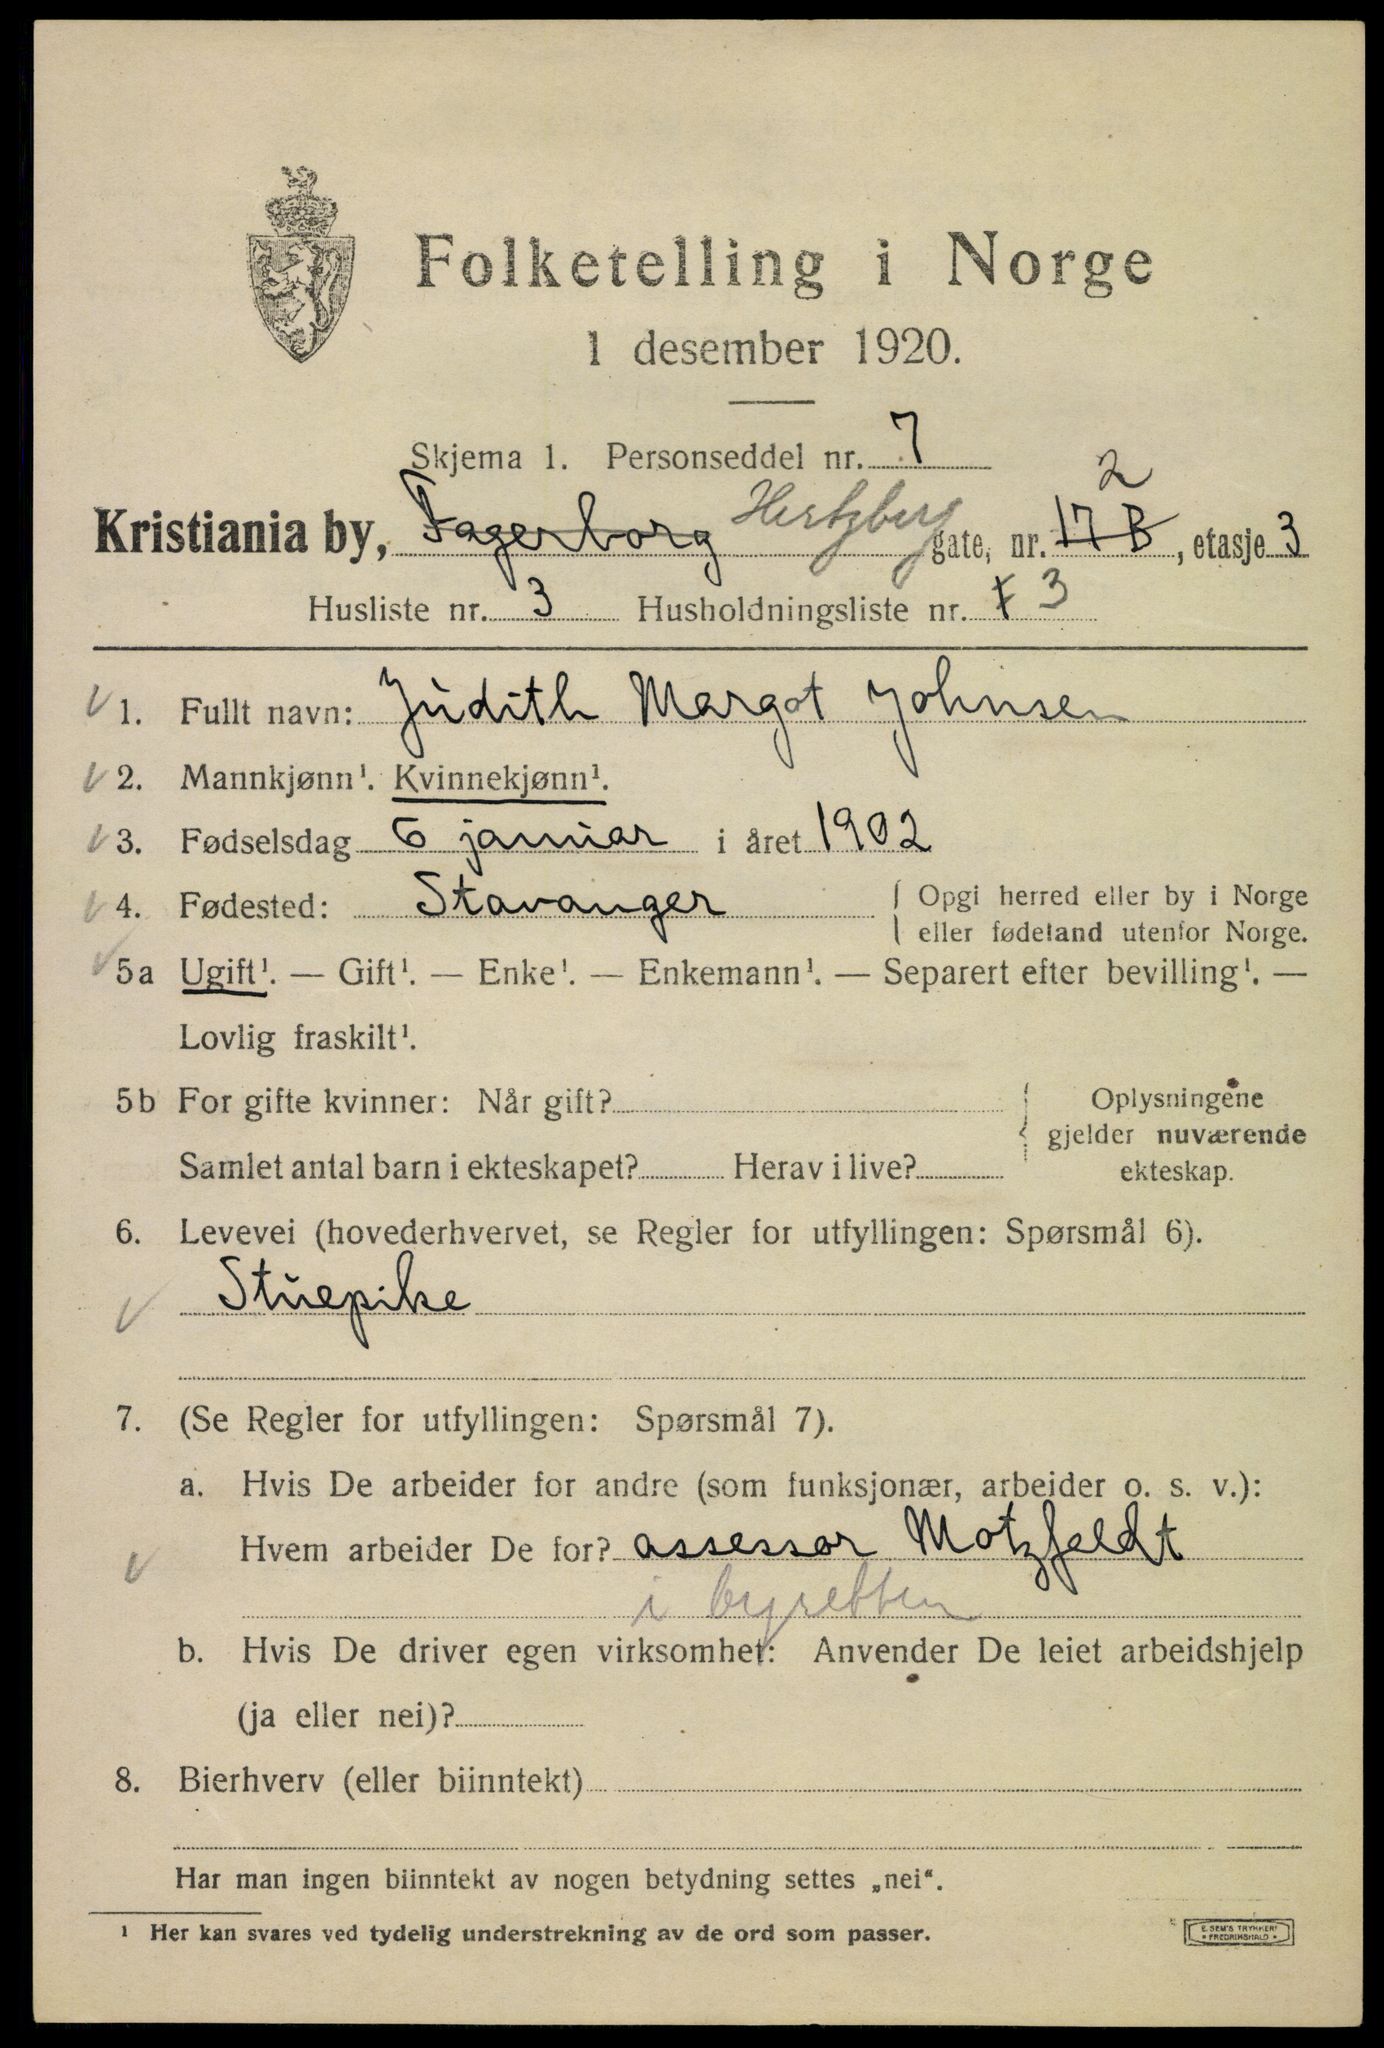 Folketelling i Norge
1 desember 1920.
Skjema 1. Personseddel nr. 7
2
Kristiania by, Fagerborg Hertzberg gate, nr. 17 B, etasje 3
Husliste nr. 3 Husholdningsliste nr. 7 3
1. Fullt navn: Judith Margot Johnsen
2. Mannkjønn¹. Kvinnekjønn¹.
3. Fødselsdag 6 januar i året 1902
4. Fødested: Stavanger { Opgi herred eller by i Norge
eller fødeland utenfor Norge.
5a Ugift¹. — Gift¹. — Enke¹. — Enkemann¹. — Separert efter bevilling¹. —
Lovlig fraskilt¹.
5b For gifte kvinner: Når gift? { Oplysningene
gjelder nuværende
Samlet antal barn i ekteskapet? Herav i live? ekteskap.
6. Levevei (hovederhvervet, se Regler for utfyllingen: Spørsmål 6).
Stuepike
7. (Se Regler for utfyllingen: Spørsmål 7).
a. Hvis De arbeider for andre (som funksjonær, arbeider o. s. v.):
Hvem arbeider De for? assessor Motzfeldt
i byretten
b. Hvis De driver egen virksomhet: Anvender De leiet arbeidshjelp
(ja eller nei)?
8. Bierhverv (eller biinntekt)
Har man ingen biinntekt av nogen betydning settes „nei“.
¹ Her kan svares ved tydelig understrekning av de ord som passer.
E. SEM'S TRYKKERI
• FREDRIKSHALD •